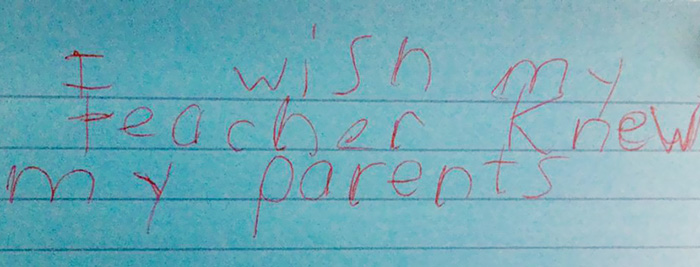 I wish my
teacher Knew
my parents